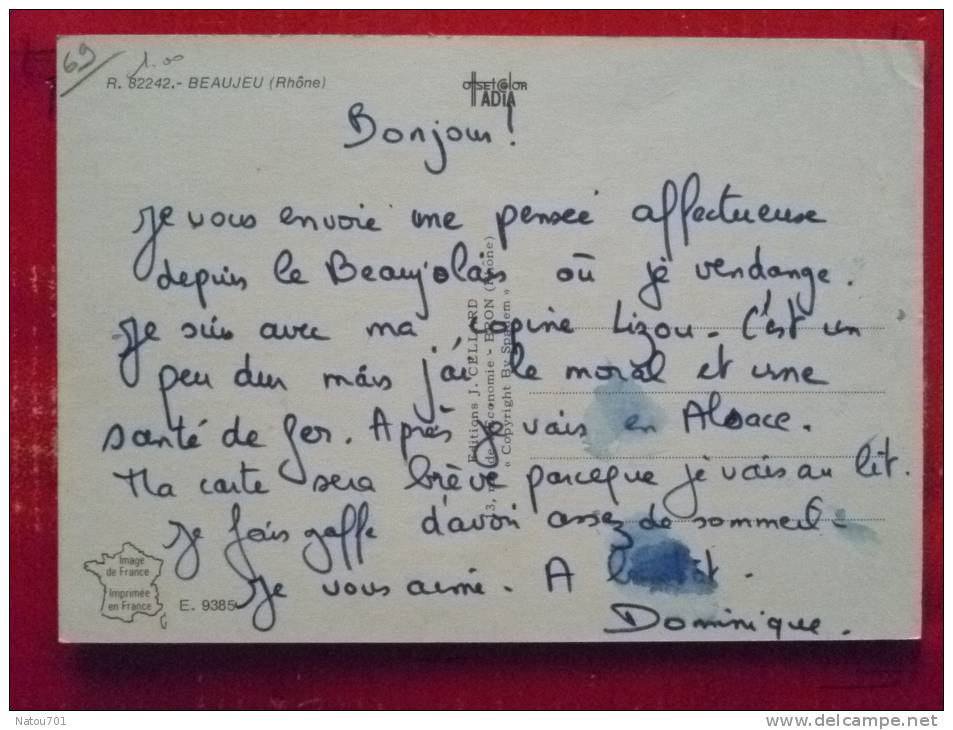 69
1.00
R. 82242.- BEAUJEU (Rhône)
OffSETCOLOR
ADIA
Bonjour!
Je vous envoie une pensée affectueuse
depuis le Beaujolais où je vendange.
Je suis avec ma copine Lizou. C'est un
peu dur mais j'ai le moral et une
santé de fer. Après je vais en Alsace.
Ma carte sera brève parceque je vais au lit.
Je fais gaffe d'avoir assez de sommeil.
Je vous aime. A .
Dominique.
Editions J. CELLARD
de l'Économie - BRON (Rhône)
« Copyright By Spadem »
Image
de France
Imprimée
en France
E. 9385
Natou701
www.delcampe.net